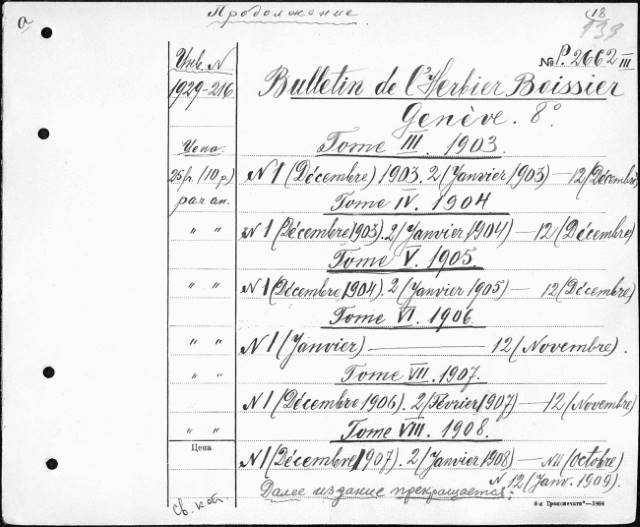 Продолжение
a
(18
133
Инв. N
№ P. 2662 III
1929-216
Bulletin de l'Herbier Boissier
Genève. 8°
Цена
Tome III. 1903.
25 fr. (10 р.)
N 1 (Décembre) 1903. 2 (Janvier 1903) — 12 (Décembre
par an.
Tome IV. 1904
" "
N 1 (Décembre 1903). 2 (Janvier 1904) — 12 (Décembre)
Tome V. 1905
" "
N 1 (Décembre 1904). 2 (Janvier 1905) — 12 (Décembre)
Tome VI. 1906
" "
N 1 (Janvier) — 12 (Novembre).
" "
Tome VII. 1907.
N 1 (Décembre 1906). 2 (Février 1907) — 12 (Novembre)
" "
Tome VIII. 1908.
Цена
N 1 (Décembre 1907). 2 (Janvier 1908) — N 11 (Octobre)
N. 12 (Janv. 1909).
Далее издание прекращается.
св. каб.